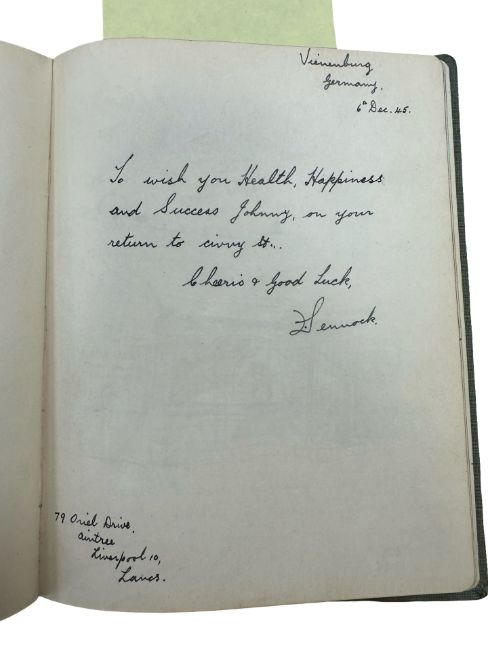 Vienenburg
Germany.
6th Dec. 45.
To wish you Health, Happiness
and Success Johnny, on your
return to civvy st..
Cheerio & Good Luck,
79 Oriel Drive,
Aintree
Liverpool 10,
Lancs.